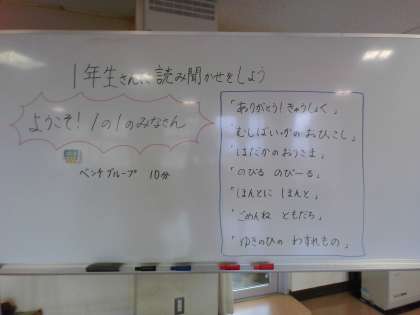 1年生さんに読み聞かせをしよう
ようこそ！1の1のみなさん
ペンケグループ 10分
「ありがとう！きゅうしょく」
「むしばいっかのおひっこし」
「はだかのおうさま」
「のびる のびーる」
「ほんとに ほんと」
「ごめんね ともだち」
「ゆきのひの わすれもの」